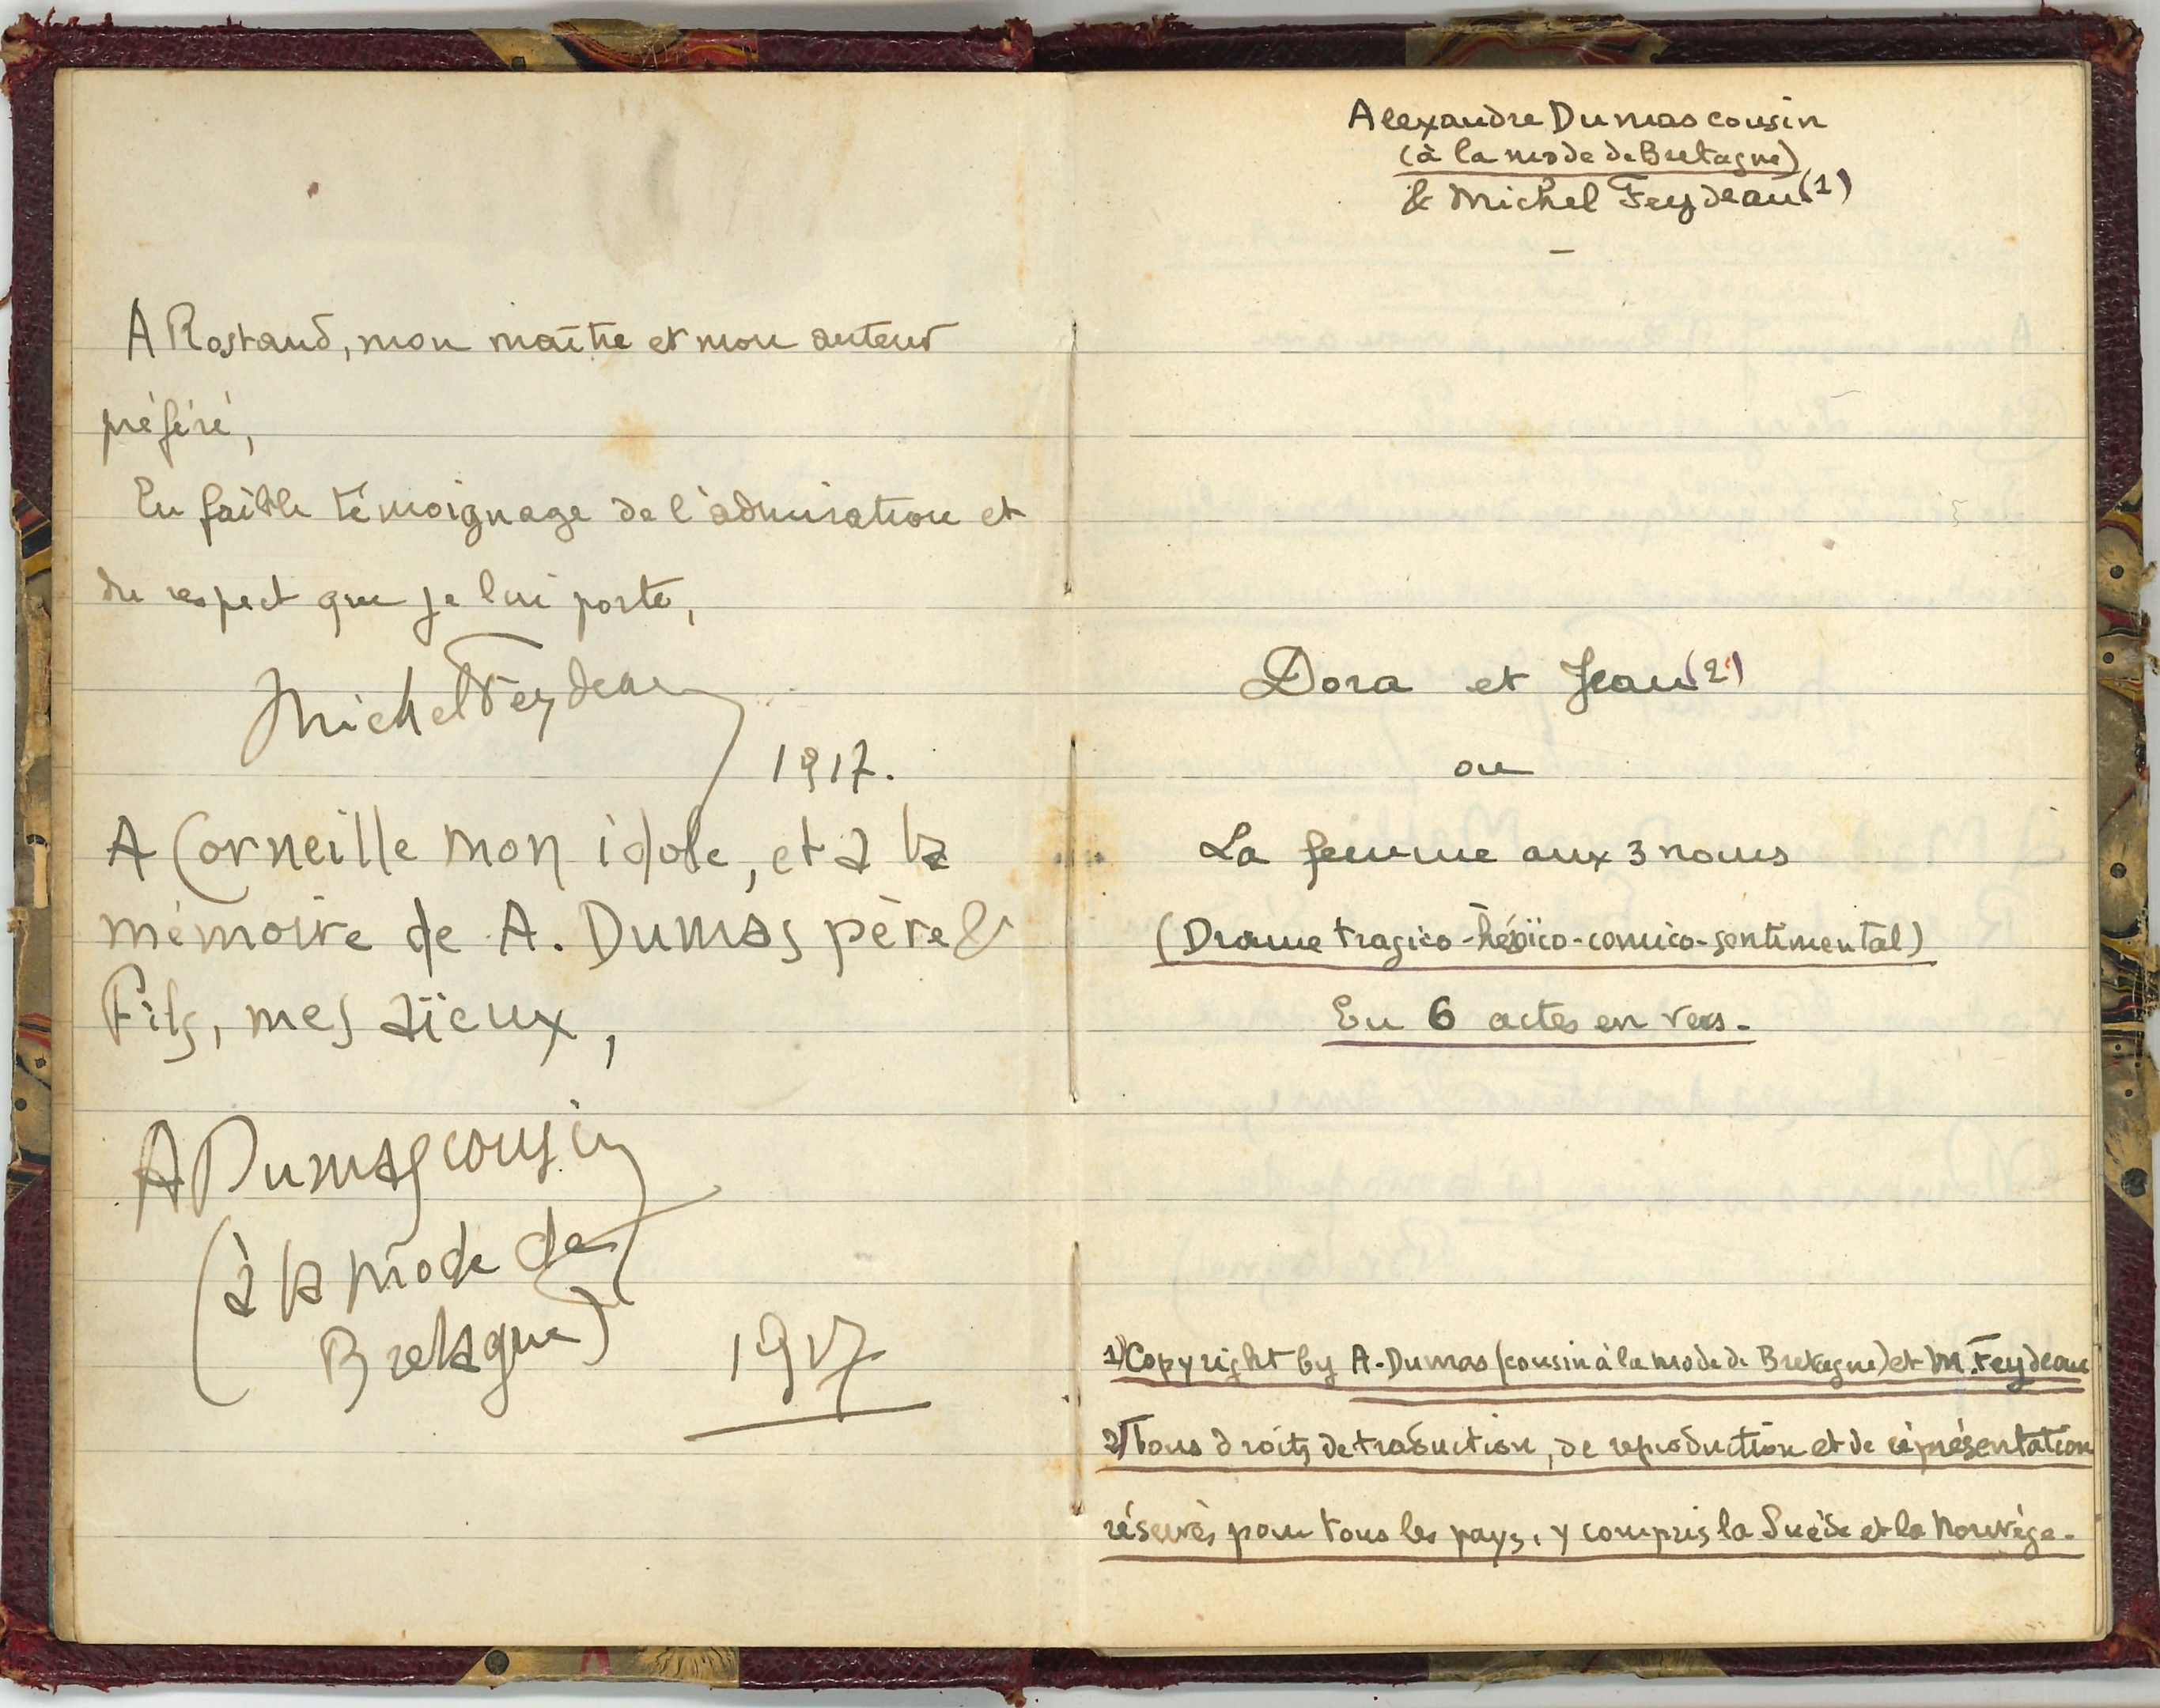 A Rostand, mon maître et mon auteur
préféré,
En faible témoignage de l'admiration et
du respect que je lui porte,
Michel Feydeau
1917.
A Corneille mon idole, et à la
mémoire de A. Dumas père &
Fils, mes aïeux,
A Dumas cousin
(à la mode de
Bretagne)
1917
Alexandre Dumas cousin
(à la mode de Bretagne)
& Michel Feydeau (1)
Dora et Jean (2)
ou
La femme aux 3 noms
(Drame tragico-héroïco-comico-sentimental)
En 6 actes en vers.
1) Copyright by A. Dumas (cousin à la mode de Bretagne) et M. Feydeau
2) Tous droits de traduction, de reproduction et de représentation
réservés pour tous les pays, y compris la Suède et la Norvège.